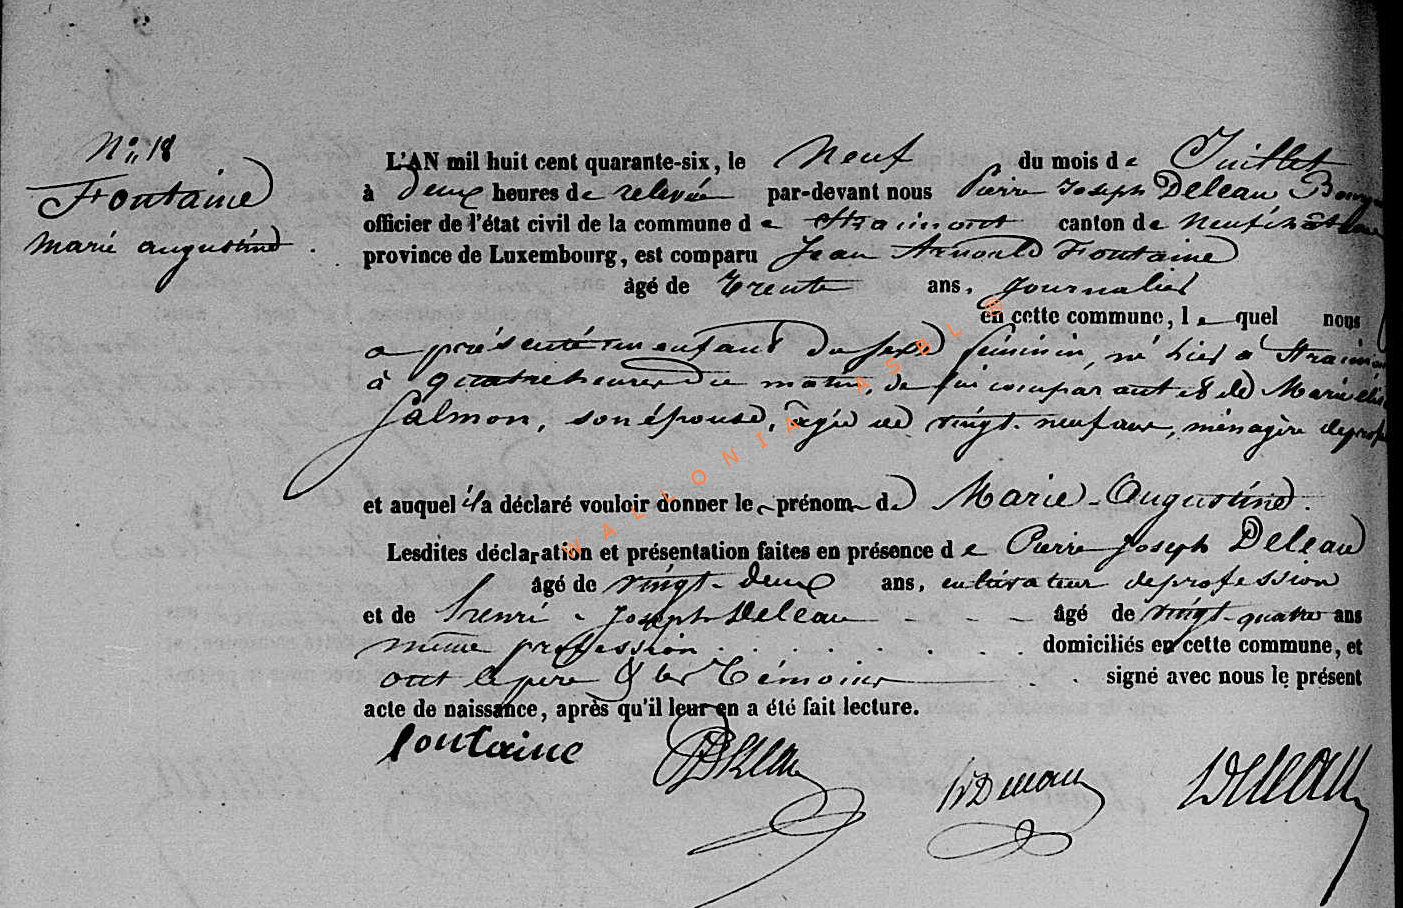 N° 18
Fontaine
Marie augustine
L'AN mil huit cent quarante-six, le Neuf du mois de Juillet
à deux heures de relevée par-devant nous Pierre Joseph Deleau
officier de l'état civil de la commune de Straimont canton de Neufchâteau
province de Luxembourg, est comparu Jean Arnould Fontaine
âgé de Trente ans, Journalier
en cette commune, lequel nous
a présenté un enfant du sexe féminin, né hier à Straimont
à quatre heures du matin, de lui comparant & de Marie
Salmon, son épouse, agée de vingt-neuf ans, ménagère de
et auquel il a déclaré vouloir donner le prénom de Marie-Augustine.
Lesdites déclaration et présentation faites en présence de Pierre Joseph Deleau
âgé de vingt-deux ans, cultivateur de profession
et de henri-Joseph Deleau - - - âgé de vingt-quatre ans
même profession . . . . . . . . domiciliés en cette commune, et
ont le père & les Témoins signé avec nous le présent
acte de naissance, après qu'il leur en a été fait lecture.
fontaine PJDeleau hJDeleau Deleau
WALLONIA ASBL ©